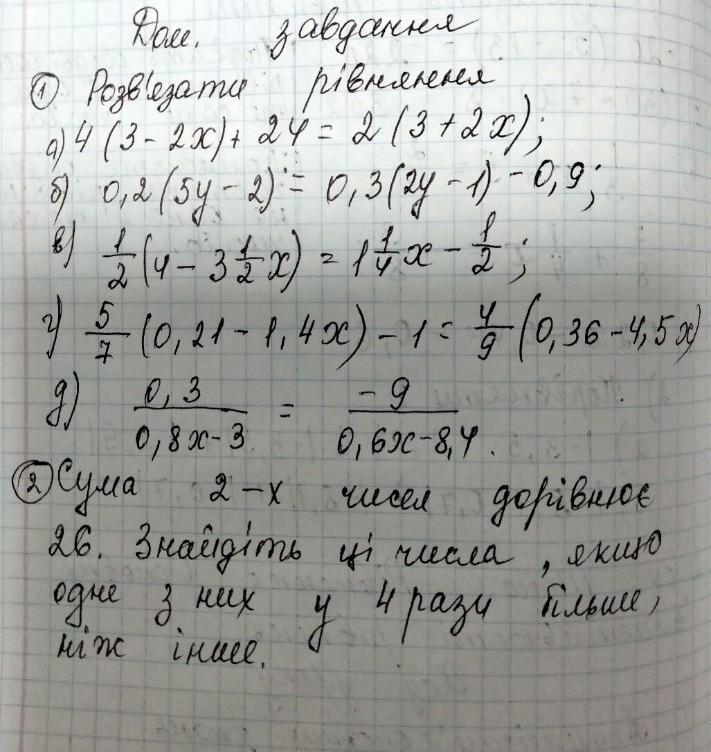 Дом. завдання
① Розв'язати рівняння
а) 4(3 - 2x) + 24 = 2(3 + 2x);
б) 0,2(5y - 2) = 0,3(2y - 1) - 0,9;
в) 1/2(4 - 3 1/2 x) = 1 1/4 x - 1/2;
г) 5/7(0,21 - 1,4x) - 1 = 4/9(0,36 - 4,5x)
д) 0,3/(0,8x - 3) = -9/(0,6x - 8,4).
② Сума 2-х чисел дорівнює
26. Знайдіть ці числа, якщо
одне з них у 4 рази більше,
ніж інше.